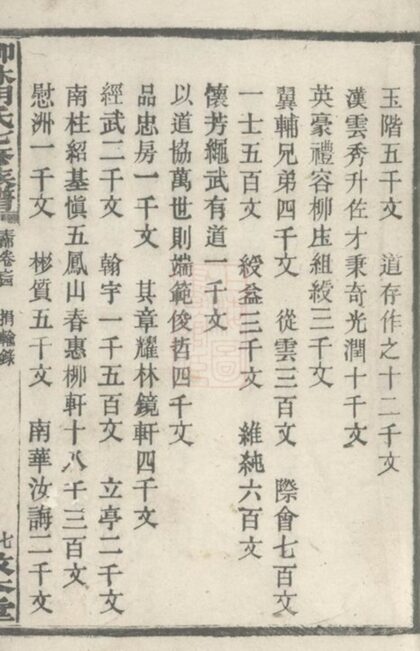 玉階五千文　道存作之十二千文
漢雲秀升佐才秉奇光潤十千文
英豪禮容柳庄組綬三千文
翼輔兄弟四千文　從雲三百文　際會七百文
一士五百文　綬益三千文　維純六百文
懷芳繩武有道一千文
以道協萬世則端範俊哲四千文
品忠房一千文　其章耀林鏡軒四千文
經武二千文　翰宇一千五百文　立亭二千文
南柱紹基愼五鳳山春惠柳軒十八千三百文
慰洲一千文　彬質五千文　南華汝誨二千文
捐輸錄
七